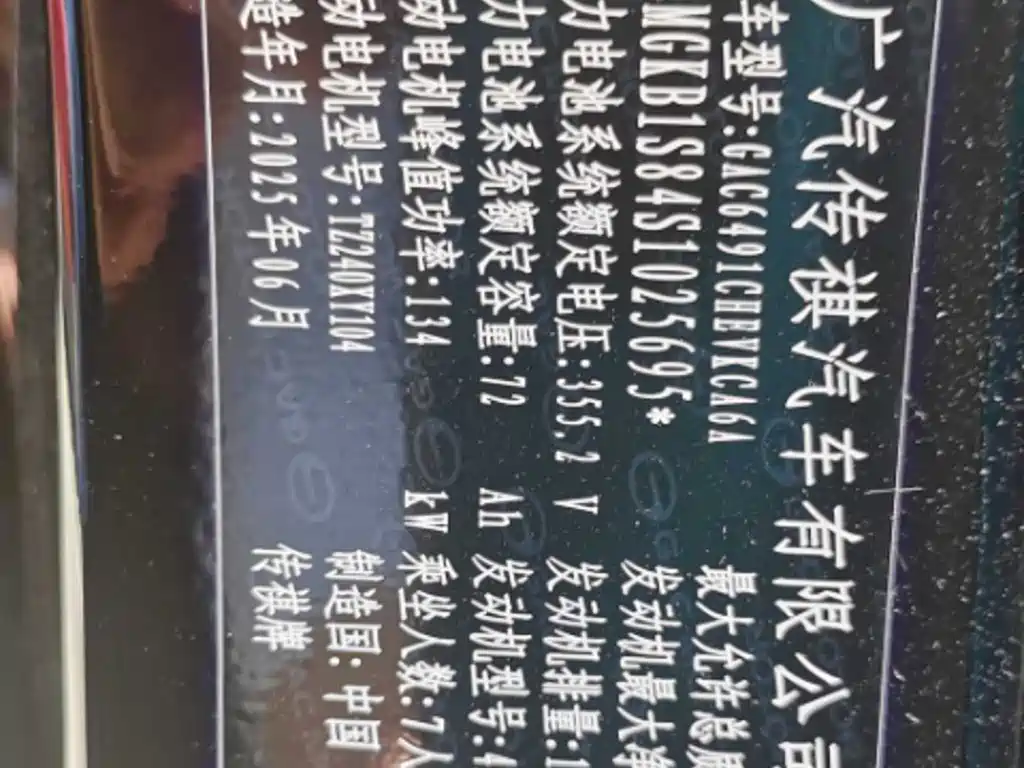 广汽传祺汽车有限公司
车型号:GAC6491CHEVKCA6A 最大允许总质
MGXB1S84S1025695* 发动机最大净
力电池系统额定电压:355.2 V 发动机排量:1
力电池系统额定容量:72 Ah 发动机型号:4
动电机峰值功率:134 kW 乘坐人数:7人
动电机型号:TZ240XY104 制造国:中国
造年月:2025年06月 传祺牌